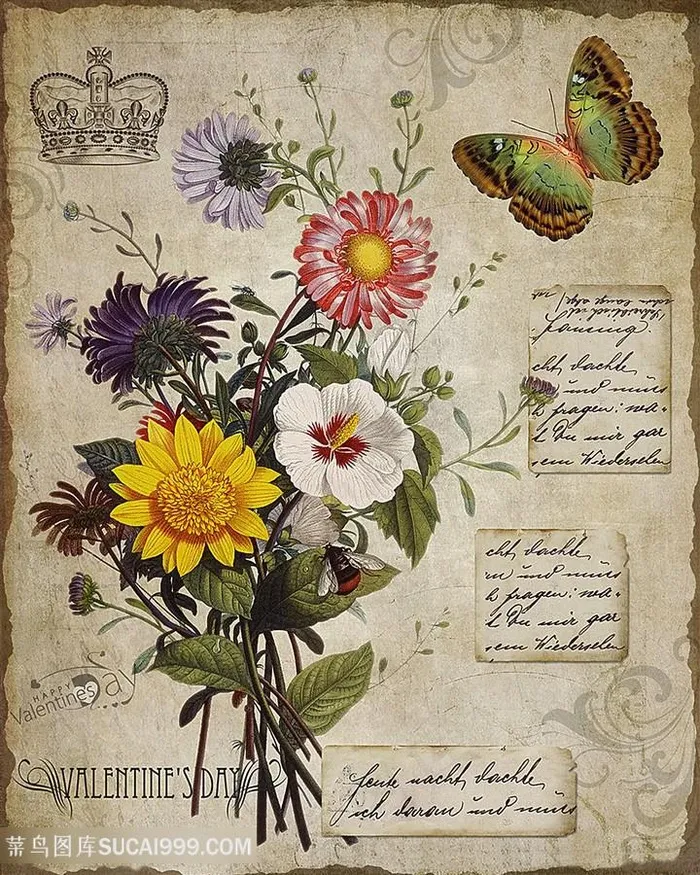 pausung.
cht dachte,
und muss
h fragen: wa-
t Du mir gar
sein Wiedersehen
cht dachte,
und muss
h fragen: wa-
t Du mir gar
sein Wiedersehen
HAPPY
Valentines Day
VALENTINE'S DAY
heute nacht dachte,
ich daran und muss
菜鸟图库SUCAI999.COM